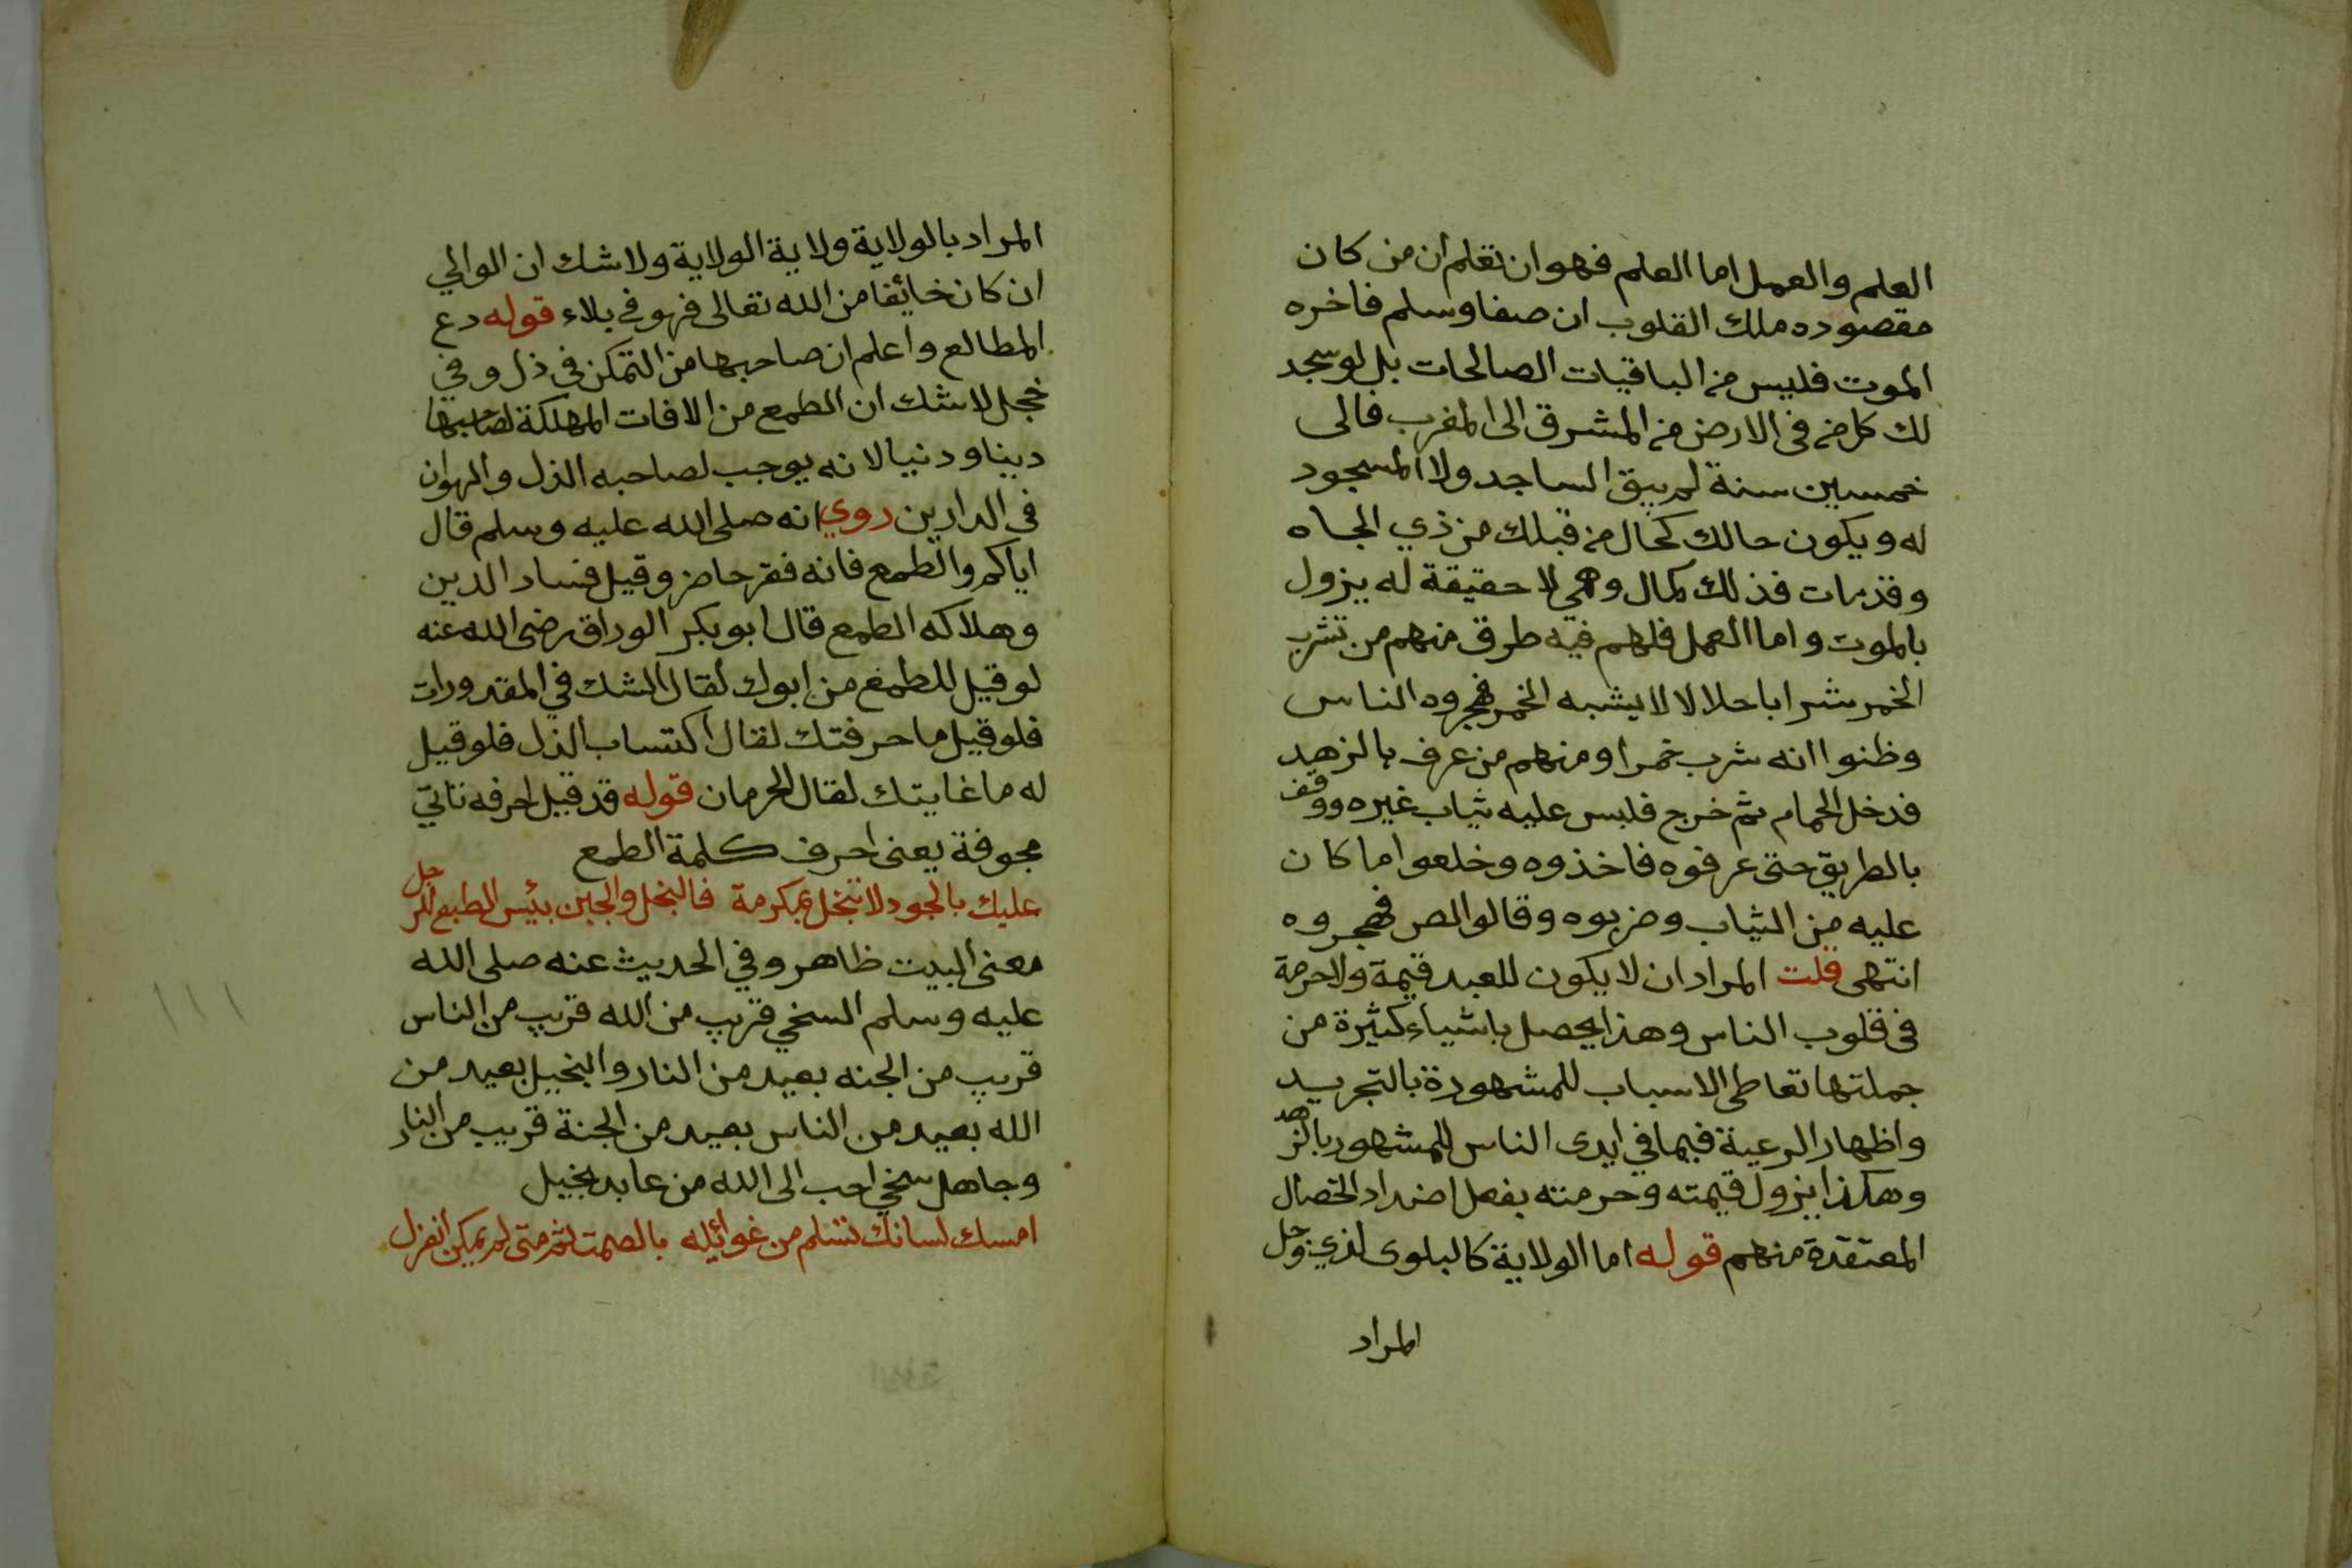 العلم والعمل اما العلم فهو ان تعلم ان من كان
مقصوده ملك القلوب ان صفا وسلم فاخره
الموت فليس من الباقيات الصالحات بل لو سجد
لك كل من في الارض من المشرق الى المغرب فالى
خمسين سنة لم يبق الساجد ولا المسجود
له ويكون حالك كحال من قبلك من ذي الجاه
وقد مات فذلك كمال وهمي لا حقيقة له يزول
بالموت واما العمل فلهم فيه طرق منهم من تشرب
الخمر شرابا حلالا لا يشبه الخمر فهجروه الناس
وظنوا انه شرب خمرا ومنهم من عرف بالزهد
فدخل الحمام ثم خرج فلبس عليه ثياب غيره ووقف
بالطريق حتى عرفوه فاخذوه وخلعوا ما كان
عليه من الثياب وضربوه وقالوا لص فهجروه
انتهى قلت المراد ان لا يكون للعبد قيمة ولا حرمة
في قلوب الناس وهذا يحصل باشياء كثيرة من
جملتها تعاطى الاسباب للمشهورة بالتجريد
واظهار الرعية فيما في ايدى الناس للمشهور بالزهد
وهكذا يزول قيمته وحرمته بفعل اضداد الخصال
المعتقدة منهم قوله اما الولاية كالبلوى لذي وجل
المراد
المراد بالولاية ولاية الولاية ولا شك ان الوالي
ان كان خائفا من الله تعالى فهو في بلاء قوله دع
المطالع واعلم ان صاحبها من التمكن في ذل وفي
خجل لا شك ان الطمع من الافات المهلكة لصاحبها
دينا ودنيا لانه يوجب لصاحبه الذل والهوان
في الدارين روي انه صلى الله عليه وسلم قال
اياكم والطمع فانه فقر حاضر وقيل فساد الدين
وهلاكه الطمع قال ابو بكر الوراق رضى الله عنه
لو قيل للطمع من ابوك لقال الشك في المقدورات
فلو قيل ما حرفتك لقال اكتساب الذل فلو قيل
له ما غايتك لقال الحرمان قوله قد قيل احرفه تاتي
مجوفة يعنى احرف كلمة الطمع
عليك بالجود لا تبخل بمكرمة فالبخل والجبن بئس الطبع للرجل
معنى البيت ظاهر وفي الحديث عنه صلى الله
عليه وسلم السخي قريب من الله قريب من الناس
قريب من الجنه بعيد من النار والبخيل بعيد من
الله بعيد من الناس بعيد من الجنة قريب من النار
وجاهل سخي احب الى الله من عابد بخيل
امسك لسانك تسلم من غوائله بالصمت ثم متى لم يمكن انعزل